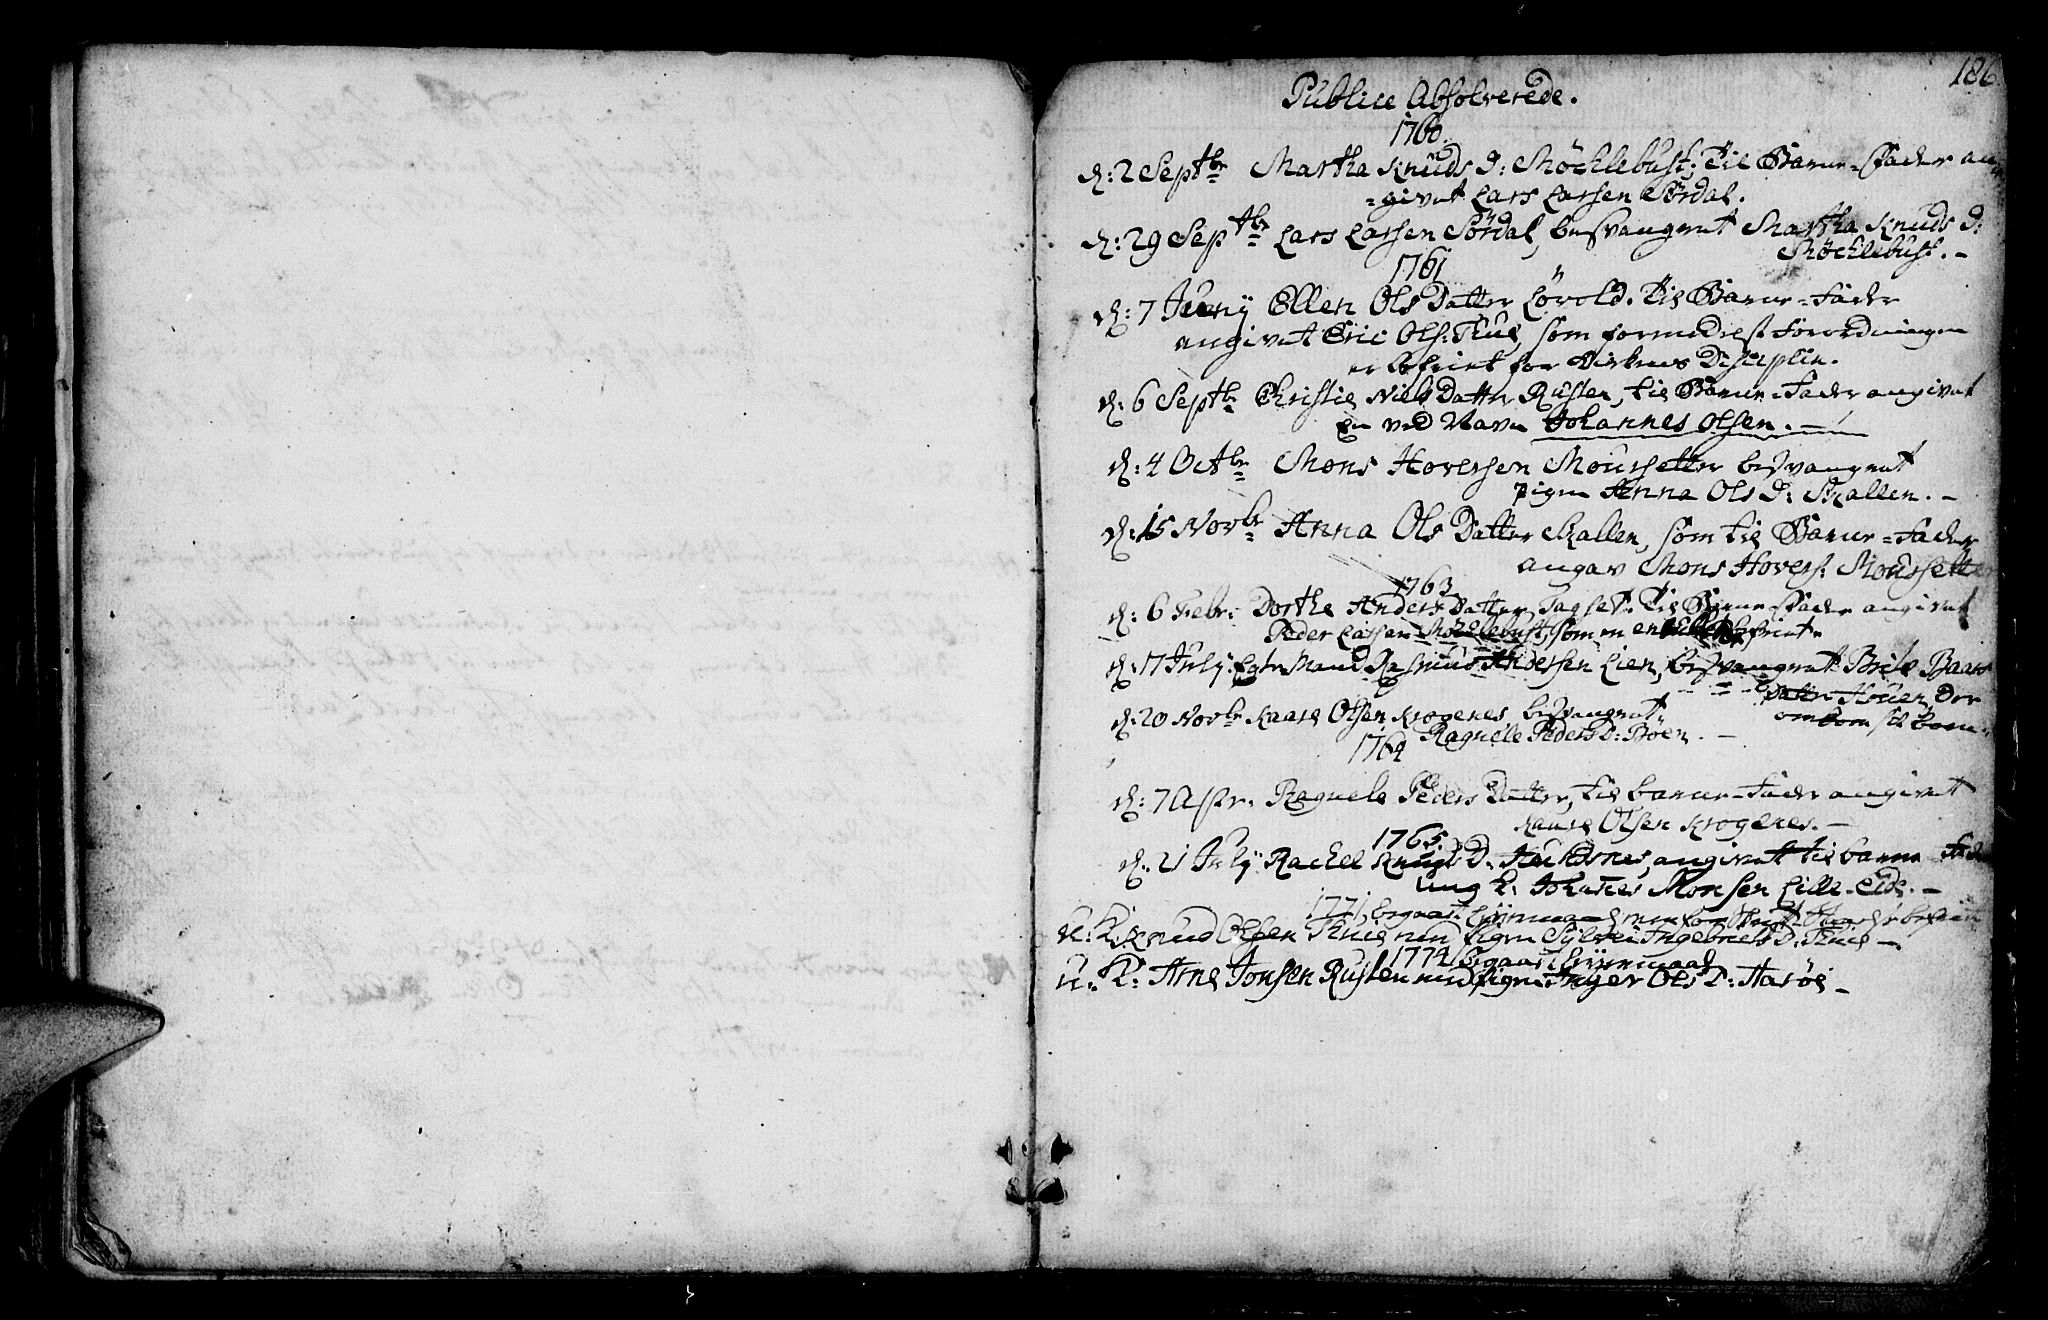 186
Publice Absolverede.
1760.
d: 2 Septbr Martha Knuds D: Möchlebust; Til Barne-Fader an-
=givet Lars Larsen Sördal.
d: 29 Septbr Lars Larsen Sördal, besvangret Martha Knuds D:
Möchlebust. -
1761
d: 7 Juny Ellen Ols Datter Lövold. Til Barne-Fader
angivet Eric Ols: Thue, som formedelst Forordningen
er befriet for Kirkens Disciplin.
d: 6 Septbr Christie Niels Datter Rusten, til Barne-Fader angivet
En ved Navn Johannes Olsen. -
d: 4 Octbr Mons Hoversen Moussetter besvangret
Pigen Anna Ols D: Skallen. -
d: 15 Novbr Anna Ols Datter Skallen, som til Barne-Fader
angav Mons Hovers: Moussetter
1763
d: 6 Febr: Dorthe Anders Datter Tagset. Til Barne-Fader angivet
Peder Larsen Möchlebust, som en befriet
d: 17 July Egte Mand Rasmus Andersen Lien, besvangret Brite Baars
Datter Houen, Der
d: 20 Novbr Kaare Olsen Krogenes, besvangret
Raguele Peders D: Böen. -
1764
d: 7 Apr: Raguele Peders Datter, til barne-Fader angivet
Kaare Olsen Krogenes. -
1765.
d. 21 July Rachel Knuds D. Haukdsnes, angivet til barne Fader
ung K: Johanes Monsen Lille-Eide. -
1771, begaaet Leyermaal men for
U: K: Knud Olsen Thue med Pigen Sylvei Ingebriets D: Thue -
1774 begaaet Leyermaal
U: K: Arne Jonsen Rusten med Pigen Inger Ols D: Aaröe -